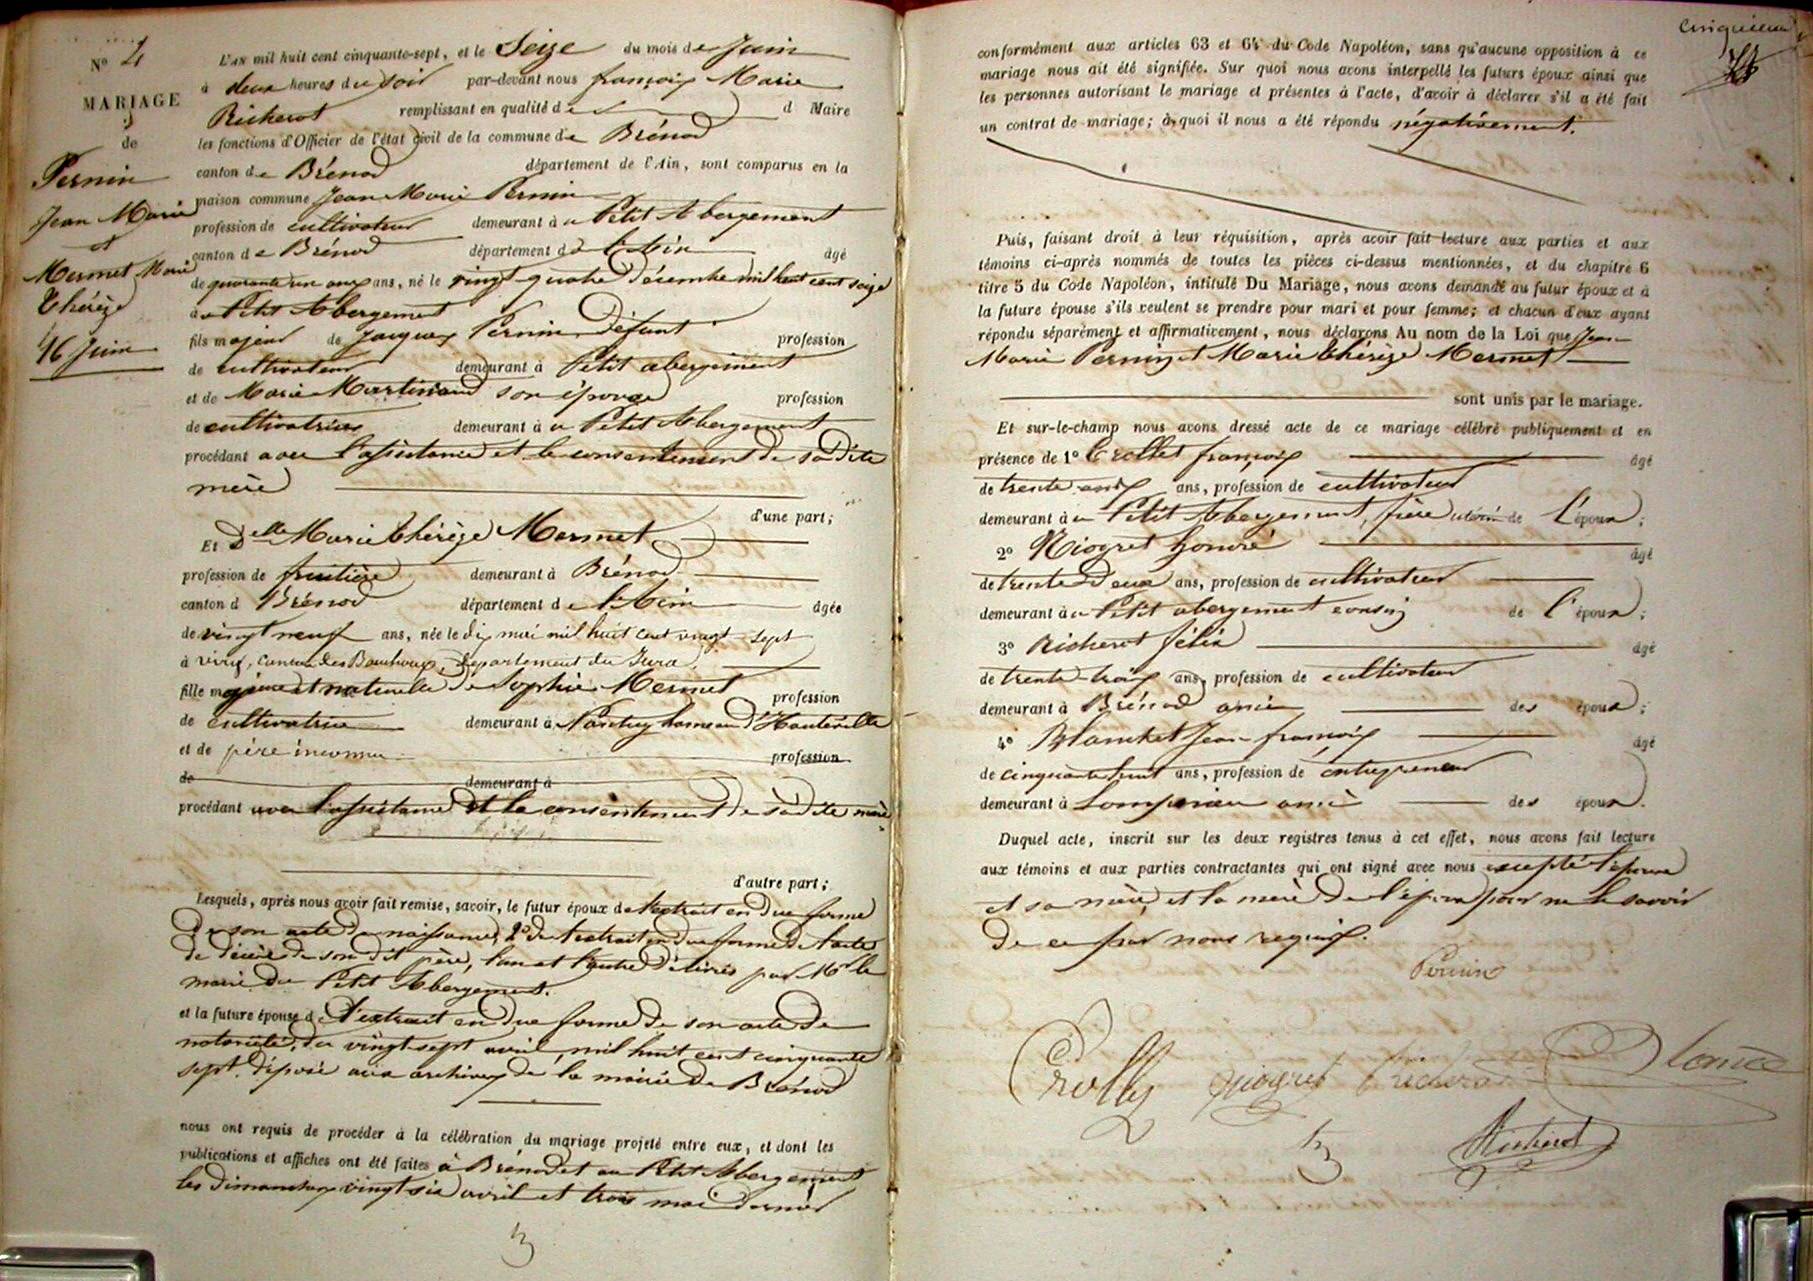 N° 4
MARIAGE
de
Pernin
Jean Marie
et
Mermet Marie
Thérèze
16 Juin
L'AN mil huit cent cinquante-sept, et le Seize du mois de Juin
à deux heures du soir par-devant nous françois Marie
Richerot remplissant en qualité de d Maire
les fonctions d'Officier de l'état civil de la commune de Brénod
canton de Brénod département de l'Ain, sont comparus en la
maison commune Jean Marie Pernin
profession de cultivateur demeurant à u Petit Abergement
canton de Brénod département d l'Ain âgé
de quarante un ans ans, né le vingt quatre Décembre mil huit cent seize
à u Petit Abergement
fils majeur de Jacques Pernin, Défunt profession
de cultivateur demeurant à Petit abergement
et de Marie Martinand son épouse profession
de cultivatrice demeurant à u Petit Abergement
procédant avec l'assistance et le consentement de sa dite
mère
d'une part;
Et Delle Marie Thérèze Mermet
profession de fruitière demeurant à Brénod
canton d Brénod département de l'Ain âgée
de vingt neuf ans, née le dix mai mil huit cent vingt sept
à viry, canton des Bouchoux, Département du Jura
fille majeure et naturelle de Sophie Mermet profession
de cultivatrice demeurant à Nantuy hameau d'Hauteville
et de père inconnu profession
de demeurant à
procédant avec l'assistance et le consentement de sa dite mère
d'autre part;
Lesquels, après nous avoir fait remise, savoir, le futur époux de l'extrait en due forme
de son acte de naissance, 2° de l'extrait en due forme de l'acte
de décès de son dit père, l'un et l'autre délivrés par Mr le
maire du Petit Abergement.
et la future épouse de l'extrait en due forme de son acte de
notoriété, du vingt sept avril, mil huit cent cinquante
sept. déposé aux archives de la mairie de Brénod
nous ont requis de procéder à la célébration du mariage projeté entre eux, et dont les
publications et affiches ont été faites à Brénod et au Petit Abergement
les dimanches vingt six avril et trois mai dernier
conformément aux articles 63 et 64 du Code Napoléon, sans qu'aucune opposition à ce
mariage nous ait été signifiée. Sur quoi nous avons interpellé les futurs époux ainsi que
les personnes autorisant le mariage et présentes à l'acte, d'avoir à déclarer s'il a été fait
un contrat de mariage; à quoi il nous a été répondu négativement.
Puis, faisant droit à leur réquisition, après avoir fait lecture aux parties et aux
témoins ci-après nommés de toutes les pièces ci-dessus mentionnées, et du chapitre 6
titre 5 du Code Napoléon, intitulé Du Mariage, nous avons demandé au futur époux et à
la future épouse s'ils veulent se prendre pour mari et pour femme; et chacun d'eux ayant
répondu séparément et affirmativement, nous déclarons Au nom de la Loi que Jean
Marie Pernin et Marie Thérèze Mermet
sont unis par le mariage.
Et sur-le-champ nous avons dressé acte de ce mariage célébré publiquement et en
présence de 1° Crollet françois âgé
de trente ans, profession de cultivateur
demeurant à u Petit Abergement, frère utérin de l'époux;
2° Niogret honoré âgé
de trente Deux ans, profession de cultivateur
demeurant à u Petit abergement cousin de l'époux;
3° Richerot félix âgé
de trente-trois ans, profession de cultivateur
demeurant à Brénod ami des époux;
4° Blanchet Jean-françois âgé
de cinquante huit ans, profession de entrepreneur
demeurant à Lompnieu ami des époux.
Duquel acte, inscrit sur les deux registres tenus à cet effet, nous avons fait lecture
aux témoins et aux parties contractantes qui ont signé avec nous excepté l'épouse
et sa mère, et la mère de l'époux pour ne le savoir
de ce par nous requis.
Pernin
Crollet Niogret Richerot
Richerot